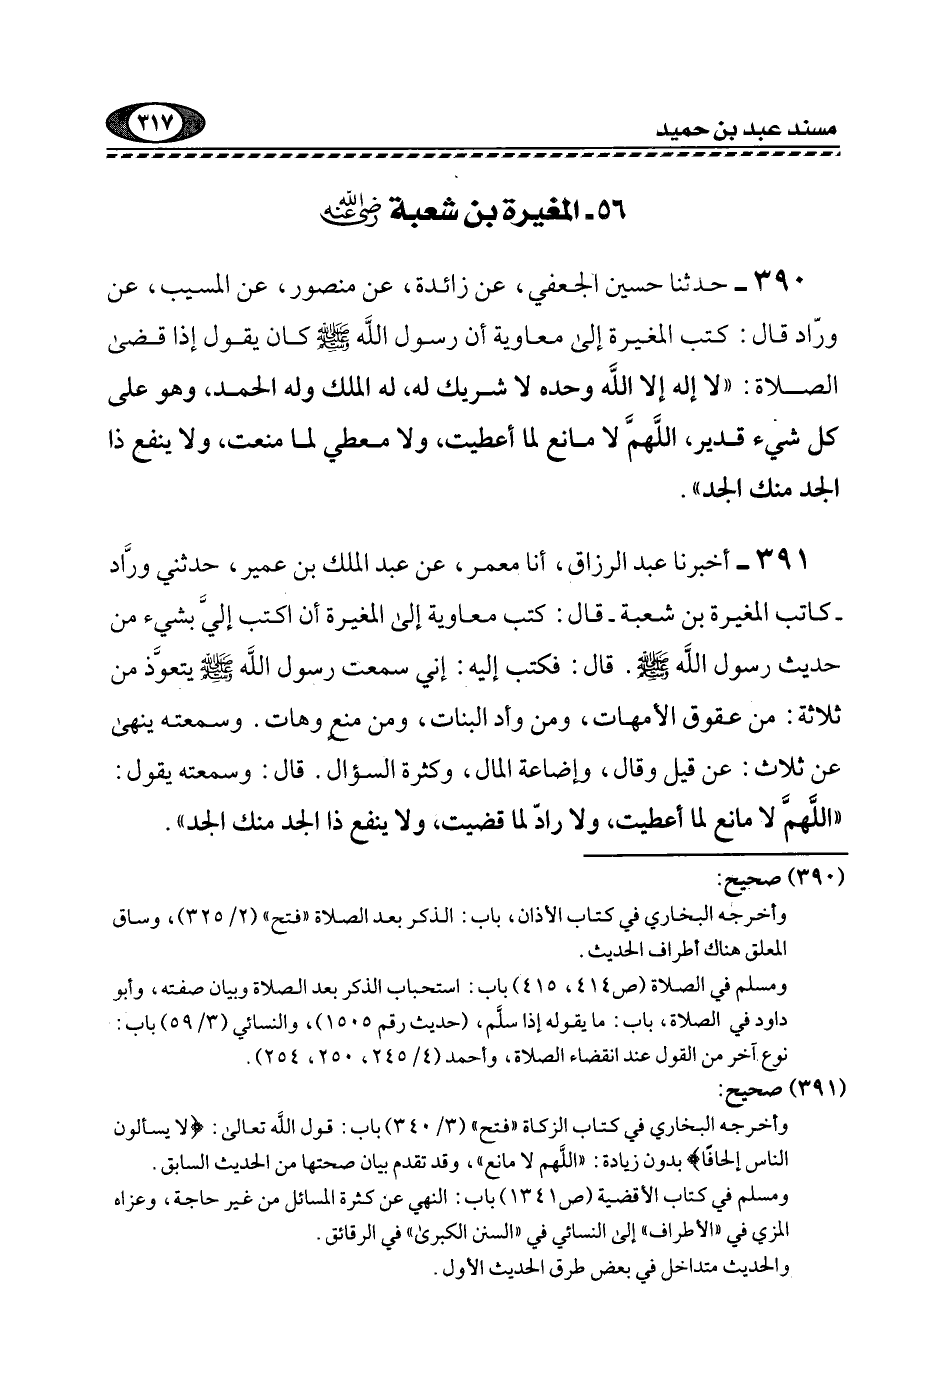 مسند عبد بن حميد
٣١٧
٥٦ـ المغيرة بن شعبة رضي الله عنه
٣٩٠ ـ حدثنا حسين الجعفي، عن زائدة، عن منصور، عن المسيب، عن
ورّاد قال: كتب المغيرة إلى معاوية أن رسول اللَّه ﷺ كان يقول إذا قضىٰ
الصلاة: «لا إله إلا اللَّه وحده لا شريك له، له الملك وله الحمد، وهو على
كل شيء قدير، اللَّهمَّ لا مانع لما أعطيت، ولا معطي لما منعت، ولا ينفع ذا
الجد منك الجد».
٣٩١ ـ أخبرنا عبد الرزاق، أنا معمر، عن عبد الملك بن عمير، حدثني ورَّاد
ـ كاتب المغيرة بن شعبة ـ قال: كتب معاوية إلىٰ المغيرة أن اكتب إليَّ بشيء من
حديث رسول اللَّه ﷺ. قال: فكتب إليه: إني سمعت رسول اللَّه ﷺ يتعوَّذ من
ثلاثة: من عقوق الأمهات، ومن وأد البنات، ومن منع وهات. وسمعته ينهىٰ
عن ثلاث: عن قيل وقال، وإضاعة المال، وكثرة السؤال. قال: وسمعته يقول:
«اللَّهمَّ لا مانع لما أعطيت، ولا رادّ لما قضيت، ولا ينفع ذا الجد منك الجد».
(٣٩٠) صحيح:
وأخرجه البخاري في كتاب الأذان، باب: الذكر بعد الصلاة «فتح» (٢/ ٣٢٥)، وساق
المعلق هناك أطراف الحديث.
ومسلم في الصلاة (ص٤١٤، ٤١٥) باب: استحباب الذكر بعد الصلاة وبيان صفته، وأبو
داود في الصلاة، باب: ما يقوله إذا سلَّم، (حديث رقم ١٥٠٥)، والنسائي (٣/ ٥٩) باب:
نوع آخر من القول عند انقضاء الصلاة، وأحمد (٤/ ٢٤٥، ٢٥٠، ٢٥٤).
(٣٩١) صحيح:
وأخرجه البخاري في كتاب الزكاة «فتح» (٣/ ٣٤٠) باب: قول اللَّه تعالىٰ: ﴿لا يسألون
الناس إلحافًا﴾ بدون زيادة: «اللهم لا مانع»، وقد تقدم بيان صحتها من الحديث السابق.
ومسلم في كتاب الأقضية (ص١٣٤١) باب: النهي عن كثرة المسائل من غير حاجة، وعزاه
المزي في «الأطراف» إلىٰ النسائي في «السنن الكبرىٰ» في الرقائق.
والحديث متداخل في بعض طرق الحديث الأول.